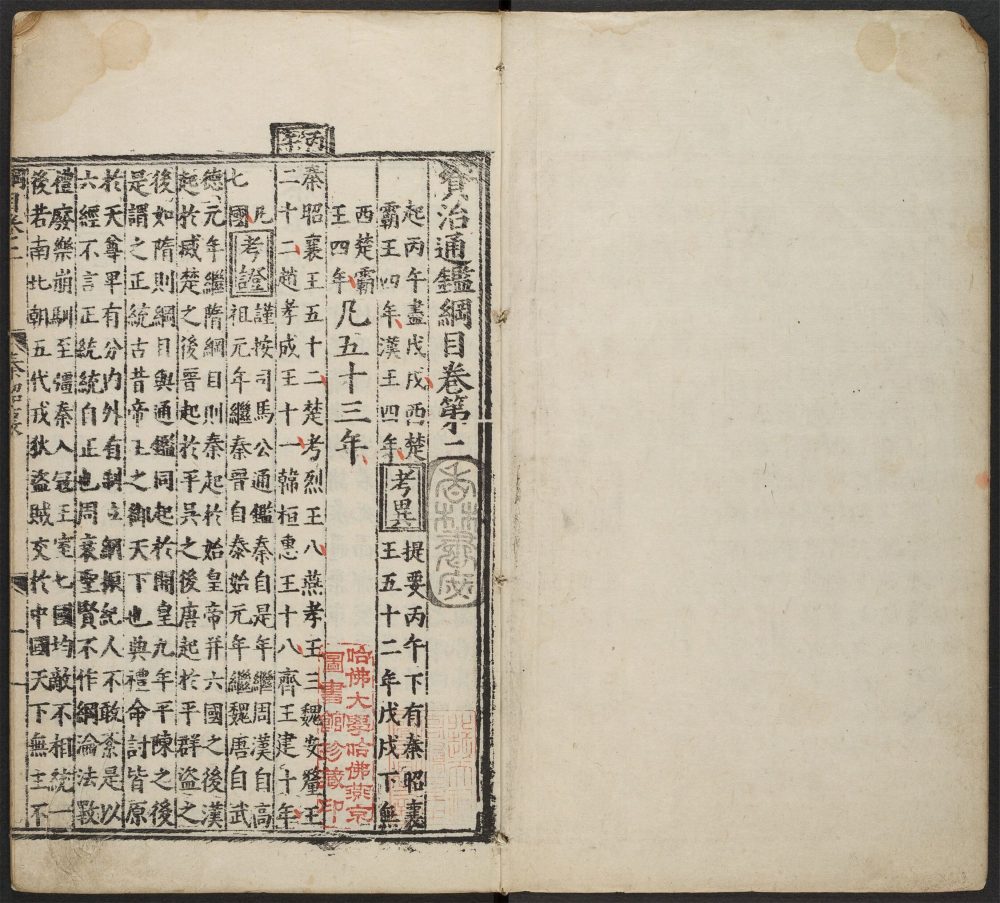 丙午
資治通鑑綱目卷第二
起丙午盡戊戌西楚
霸王四年漢王四年
考異
提要丙午下有秦昭襄
王五十二年戊戌下無
西楚霸
王四年
凡五十三年
秦昭襄王五十二楚考烈王八燕孝王三魏安釐王
二十二趙孝成王十一韓桓惠王十八齊王建十年
凡
七國
考證
謹按司馬公通鑑秦自是年繼周漢自高
祖元年繼秦晉自泰始元年繼魏唐自武
德元年繼隋綱目則秦起於始皇帝并六國之後漢
起於滅楚之後晉起於平吳之後唐起於平群盜之
後如隋則綱目與通鑑同起於開皇九年平陳之後
是謂之正統古昔帝王之御天下也典禮命討皆原
於天尊卑有分內外有制立綱振紀人不敢紊是以
六經不言正統統自正也周衰聖賢不作綱淪法斁
禮廢樂崩馴至彊秦入寇王室七國均敵不相統一
後若南北朝五代戎狄盜賊交於中國天下無主不
綱目卷二
秦昭襄
一
哈佛大學哈佛燕京
圖書館珍藏印